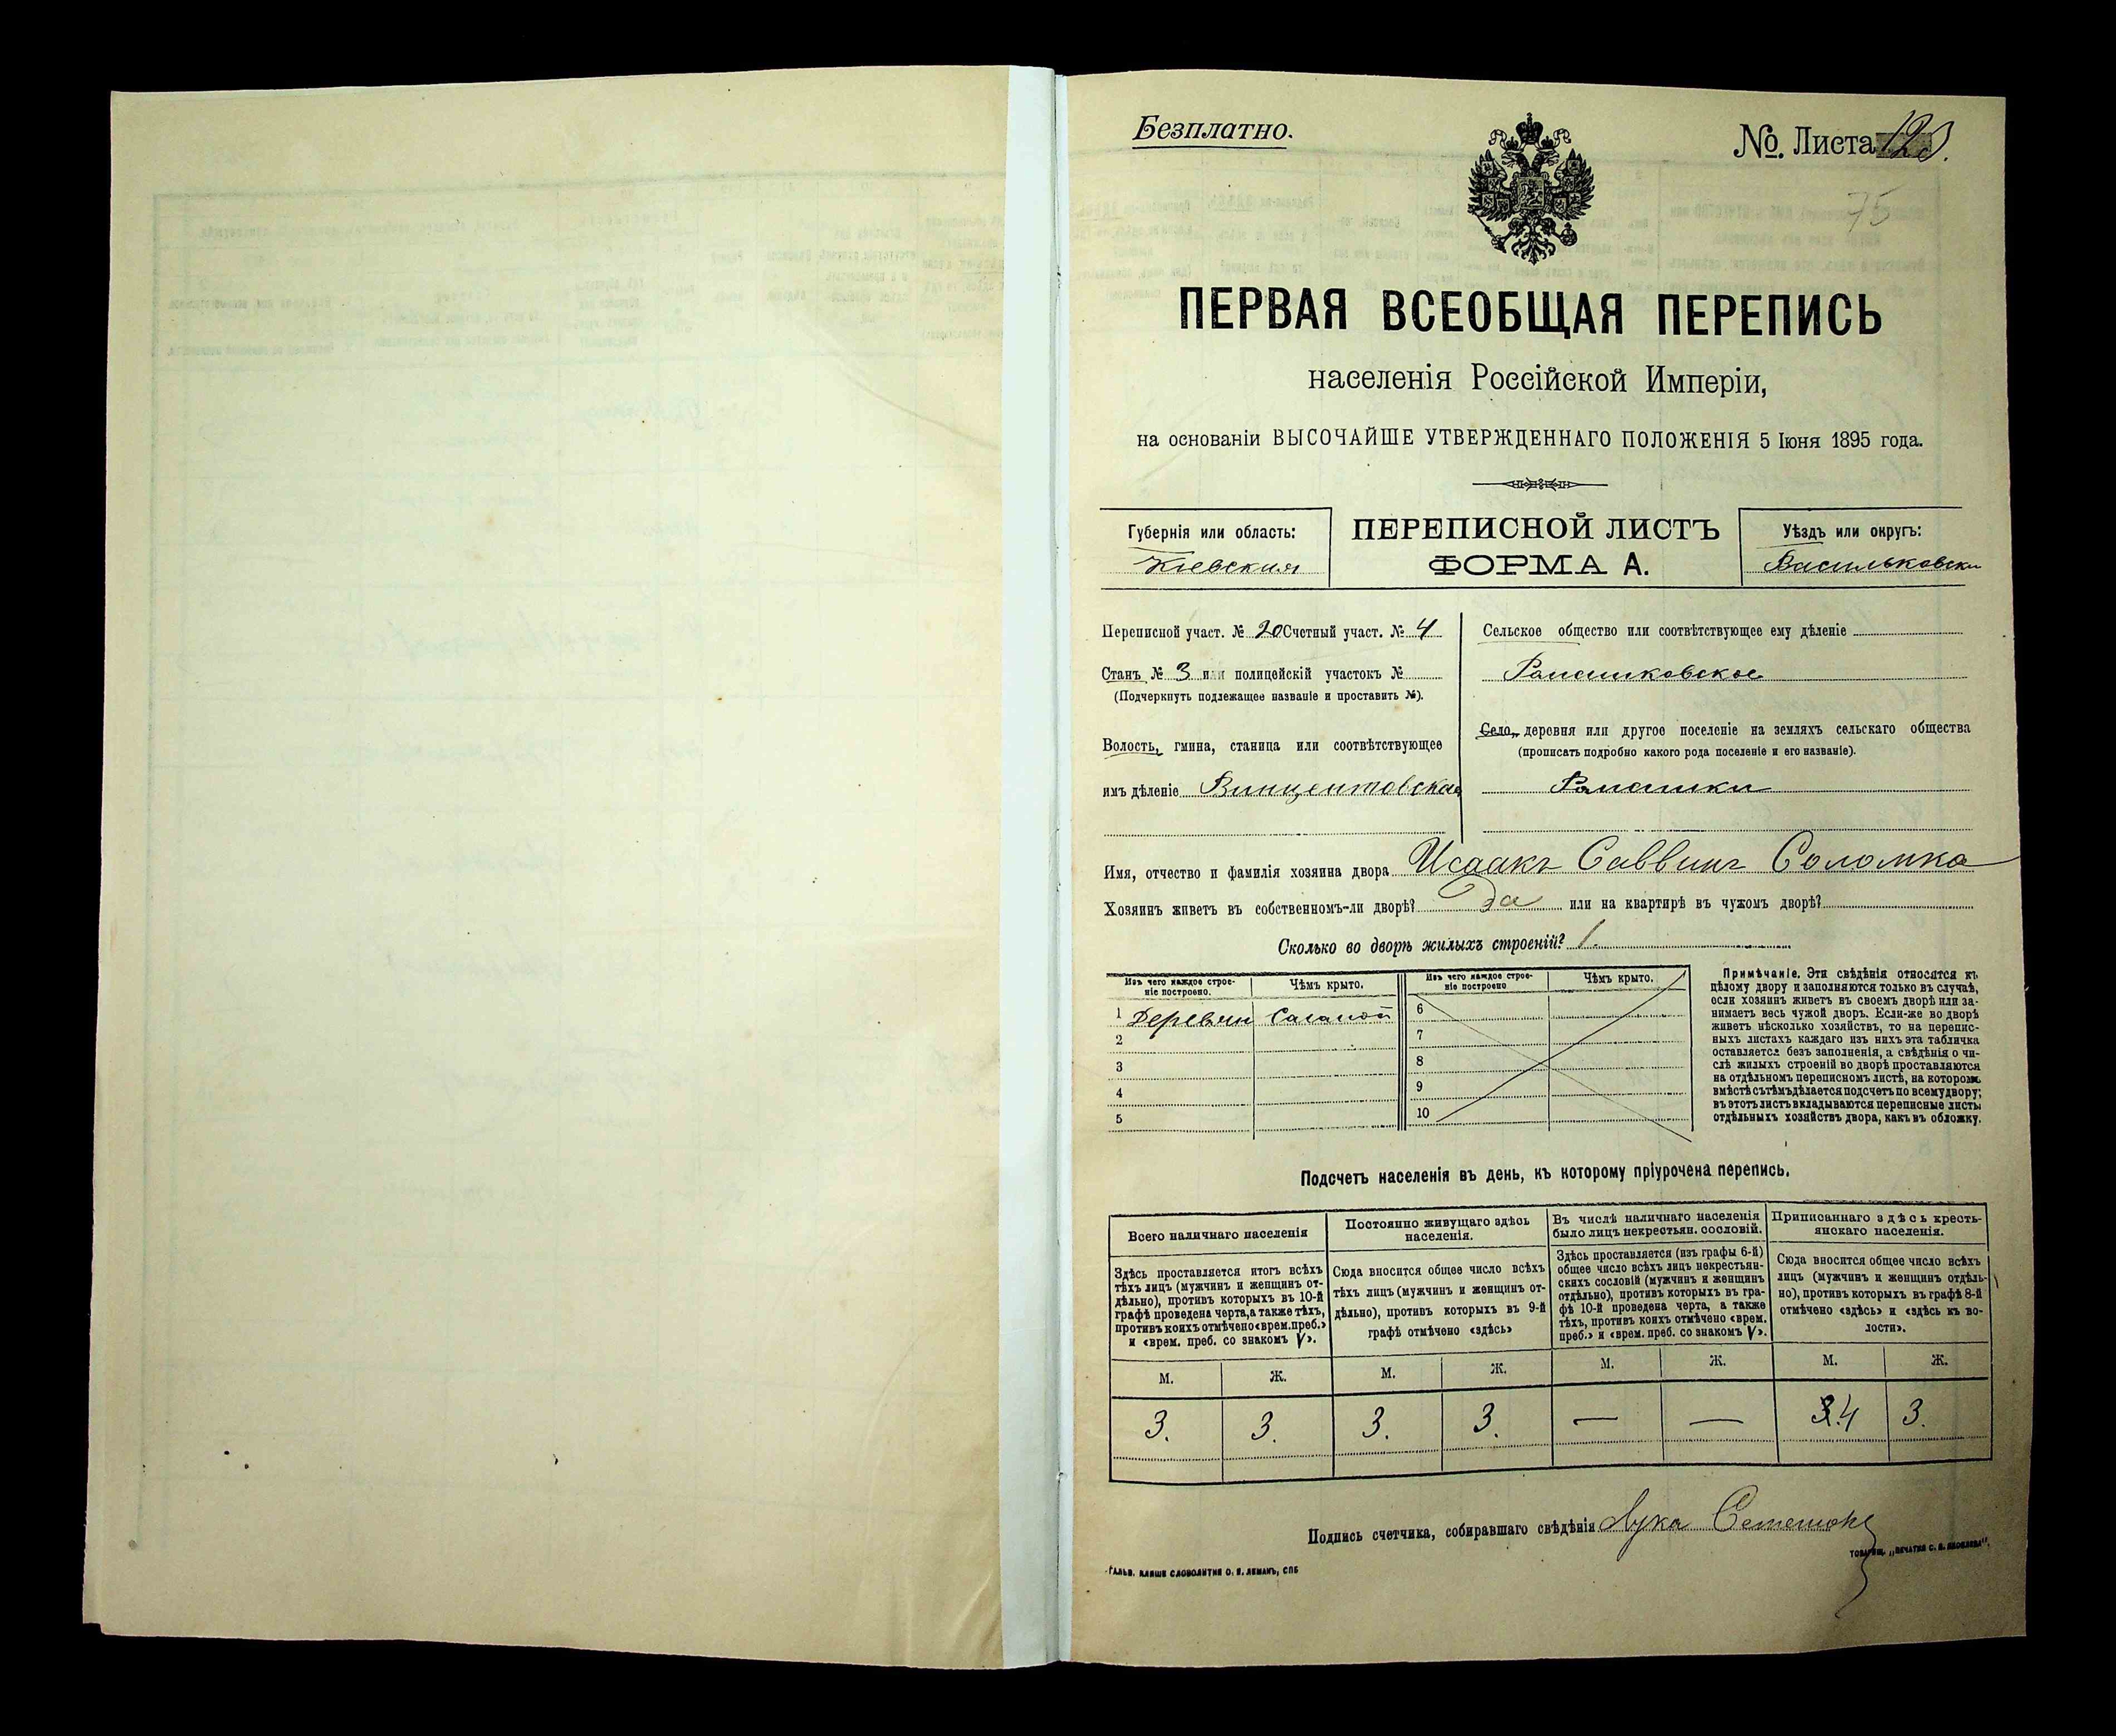 Безплатно.
№ Листа 120.
75
ПЕРВАЯ ВСЕОБЩАЯ ПЕРЕПИСЬ
населенія Россійской Имперіи,
на основаніи ВЫСОЧАЙШЕ УТВЕРЖДЕННАГО ПОЛОЖЕНІЯ 5 Іюня 1895 года.
Губернія или область:
Кіевская
ПЕРЕПИСНОЙ ЛИСТЪ
ФОРМА А.
Уѣздъ или округъ:
Васильковски
Переписной участ. № 20 Счетный участ. № 4
Станъ № 3 или полицейскій участокъ №
(Подчеркнуть подлежащее названіе и проставить №).
Волость, гмина, станица или соотвѣтствующее
имъ дѣленіе Винцентовская
Сельское общество или соотвѣтствующее ему дѣленіе
Ромашковское
Село, деревня или другое поселеніе на земляхъ сельскаго общества
(прописать подробно какого рода поселеніе и его названіе).
Ромашки
Имя, отчество и фамилія хозяина двора Исаакъ Саввинъ Соломка
Хозяинъ живетъ въ собственномъ-ли дворѣ? Да или на квартирѣ въ чужомъ дворѣ?
Сколько во дворѣ жилыхъ строеній? 1.
Изъ чего каждое строе-
ніе построено.
Чѣмъ крыто.
1 Деревян Соломой
2
3
4
5
Изъ чего каждое строе-
ніе построено
Чѣмъ крыто.
6
7
8
9
10
Примѣчаніе. Эти свѣдѣнія относятся къ
цѣлому двору и заполняются только въ случаѣ,
если хозяинъ живетъ въ своемъ дворѣ или за-
нимаетъ весь чужой дворъ. Если-же во дворѣ
живетъ нѣсколько хозяйствъ, то на перепис-
ныхъ листахъ каждаго изъ нихъ эта табличка
оставляется безъ заполненія, а свѣдѣнія о чи-
слѣ жилыхъ строеній во дворѣ проставляются
на отдѣльномъ переписномъ листѣ, на которомъ
вмѣстѣ съ тѣмъ дѣлается подсчетъ по всему двору;
въ этотъ листъ вкладываются переписные листы
отдѣльныхъ хозяйствъ двора, какъ въ обложку.
Подсчетъ населенія въ день, къ которому пріурочена перепись.
Всего наличнаго населенія
Здѣсь проставляется итогъ всѣхъ
тѣхъ лицъ (мужчинъ и женщинъ от-
дѣльно), противъ которыхъ въ 10-й
графѣ проведена черта, а также тѣхъ,
противъ коихъ отмѣчено «врем. преб.»
и «врем. преб. со знакомъ V».
Постоянно живущаго здѣсь
населенія.
Сюда вносится общее число всѣхъ
тѣхъ лицъ (мужчинъ и женщинъ от-
дѣльно), противъ которыхъ въ 9-й
графѣ отмѣчено «здѣсь»
Въ числѣ наличнаго населенія
было лицъ некрестьян. сословій.
Здѣсь проставляется (изъ графы 6-й)
общее число всѣхъ лицъ некрестьян-
скихъ сословій (мужчинъ и женщинъ
отдѣльно), противъ которыхъ въ гра-
фѣ 10-й проведена черта, а также
тѣхъ, противъ коихъ отмѣчено «врем.
преб.» и «врем. преб. со знакомъ V».
Приписаннаго здѣсь кресть-
янскаго населенія.
Сюда вносится общее число всѣхъ
лицъ (мужчинъ и женщинъ отдѣль-
но), противъ которыхъ въ графѣ 8-й
отмѣчено «здѣсь» и «здѣсь въ во-
лости».
М. Ж. М. Ж. М. Ж. М. Ж.
3. 3. 3. 3. — — 3.4 3.
Подпись счетчика, собиравшаго свѣдѣнія Лука
ГАЛЬВ. КЛИШЕ СЛОВОЛИТНИ О. И. ЛЕМАНЪ, СПБ
ТОВАРИЩ. „ПЕЧАТНЯ С. П. ЯКОВЛЕВА".